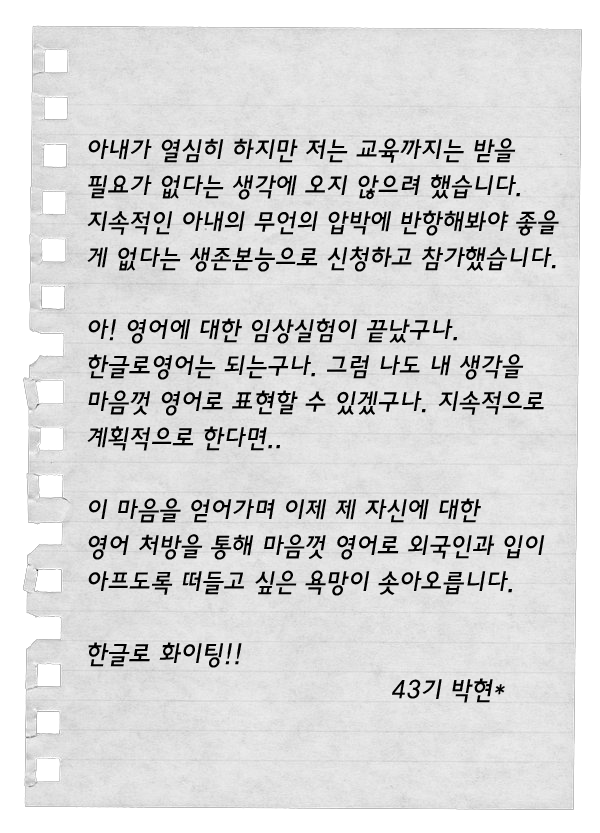 아내가 열심히 하지만 저는 교육까지는 받을
필요가 없다는 생각에 오지 않으려 했습니다.
지속적인 아내의 무언의 압박에 반항해봐야 좋을
게 없다는 생존본능으로 신청하고 참가했습니다.
아! 영어에 대한 임상실험이 끝났구나.
한글로영어는 되는구나. 그럼 나도 내 생각을
마음껏 영어로 표현할 수 있겠구나. 지속적으로
계획적으로 한다면..
이 마음을 얻어가며 이제 제 자신에 대한
영어 처방을 통해 마음껏 영어로 외국인과 입이
아프도록 떠들고 싶은 욕망이 솟아오릅니다.
한글로 화이팅!!
43기 박현*